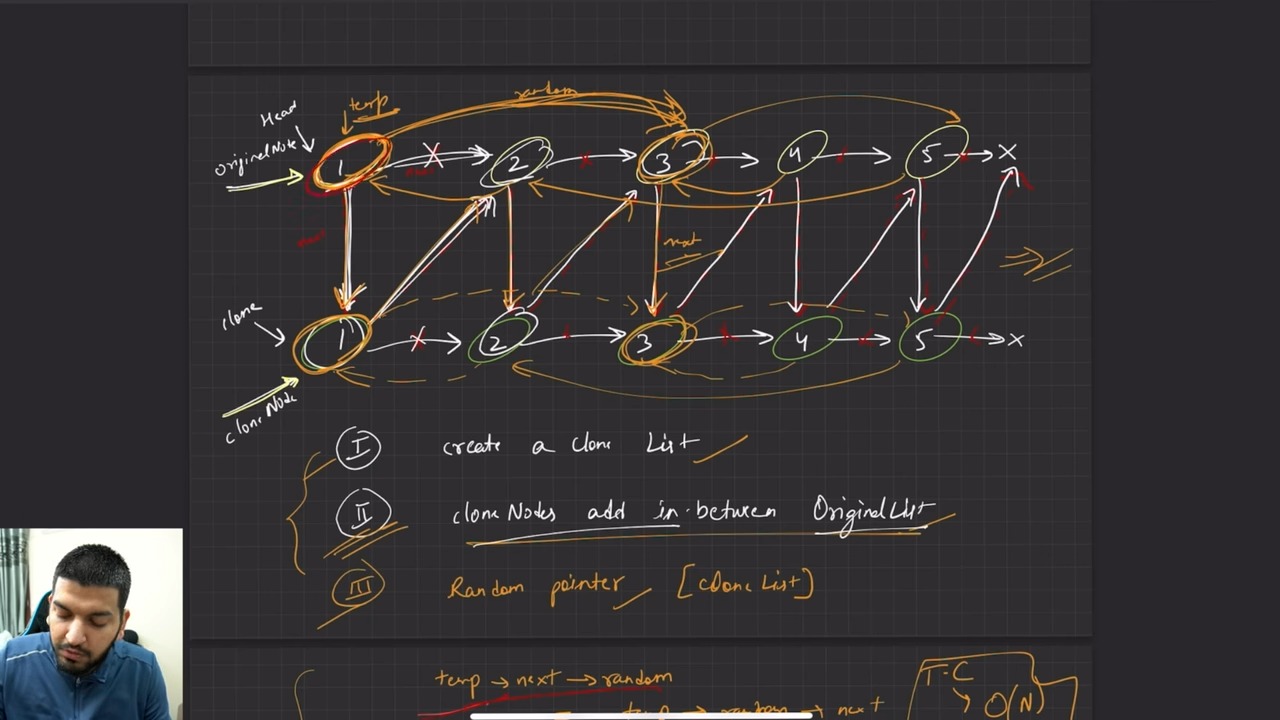 random
temp
Head
OriginalNote
1 X 2 3 4 5 X
next
clone
1 X 2 3 4 5 X
cloneNode
I create a clone List
II cloneNodes add in between OriginalList
III Random pointer [clone List]
temp → next → random
T.C
temp → random → next
O(N)